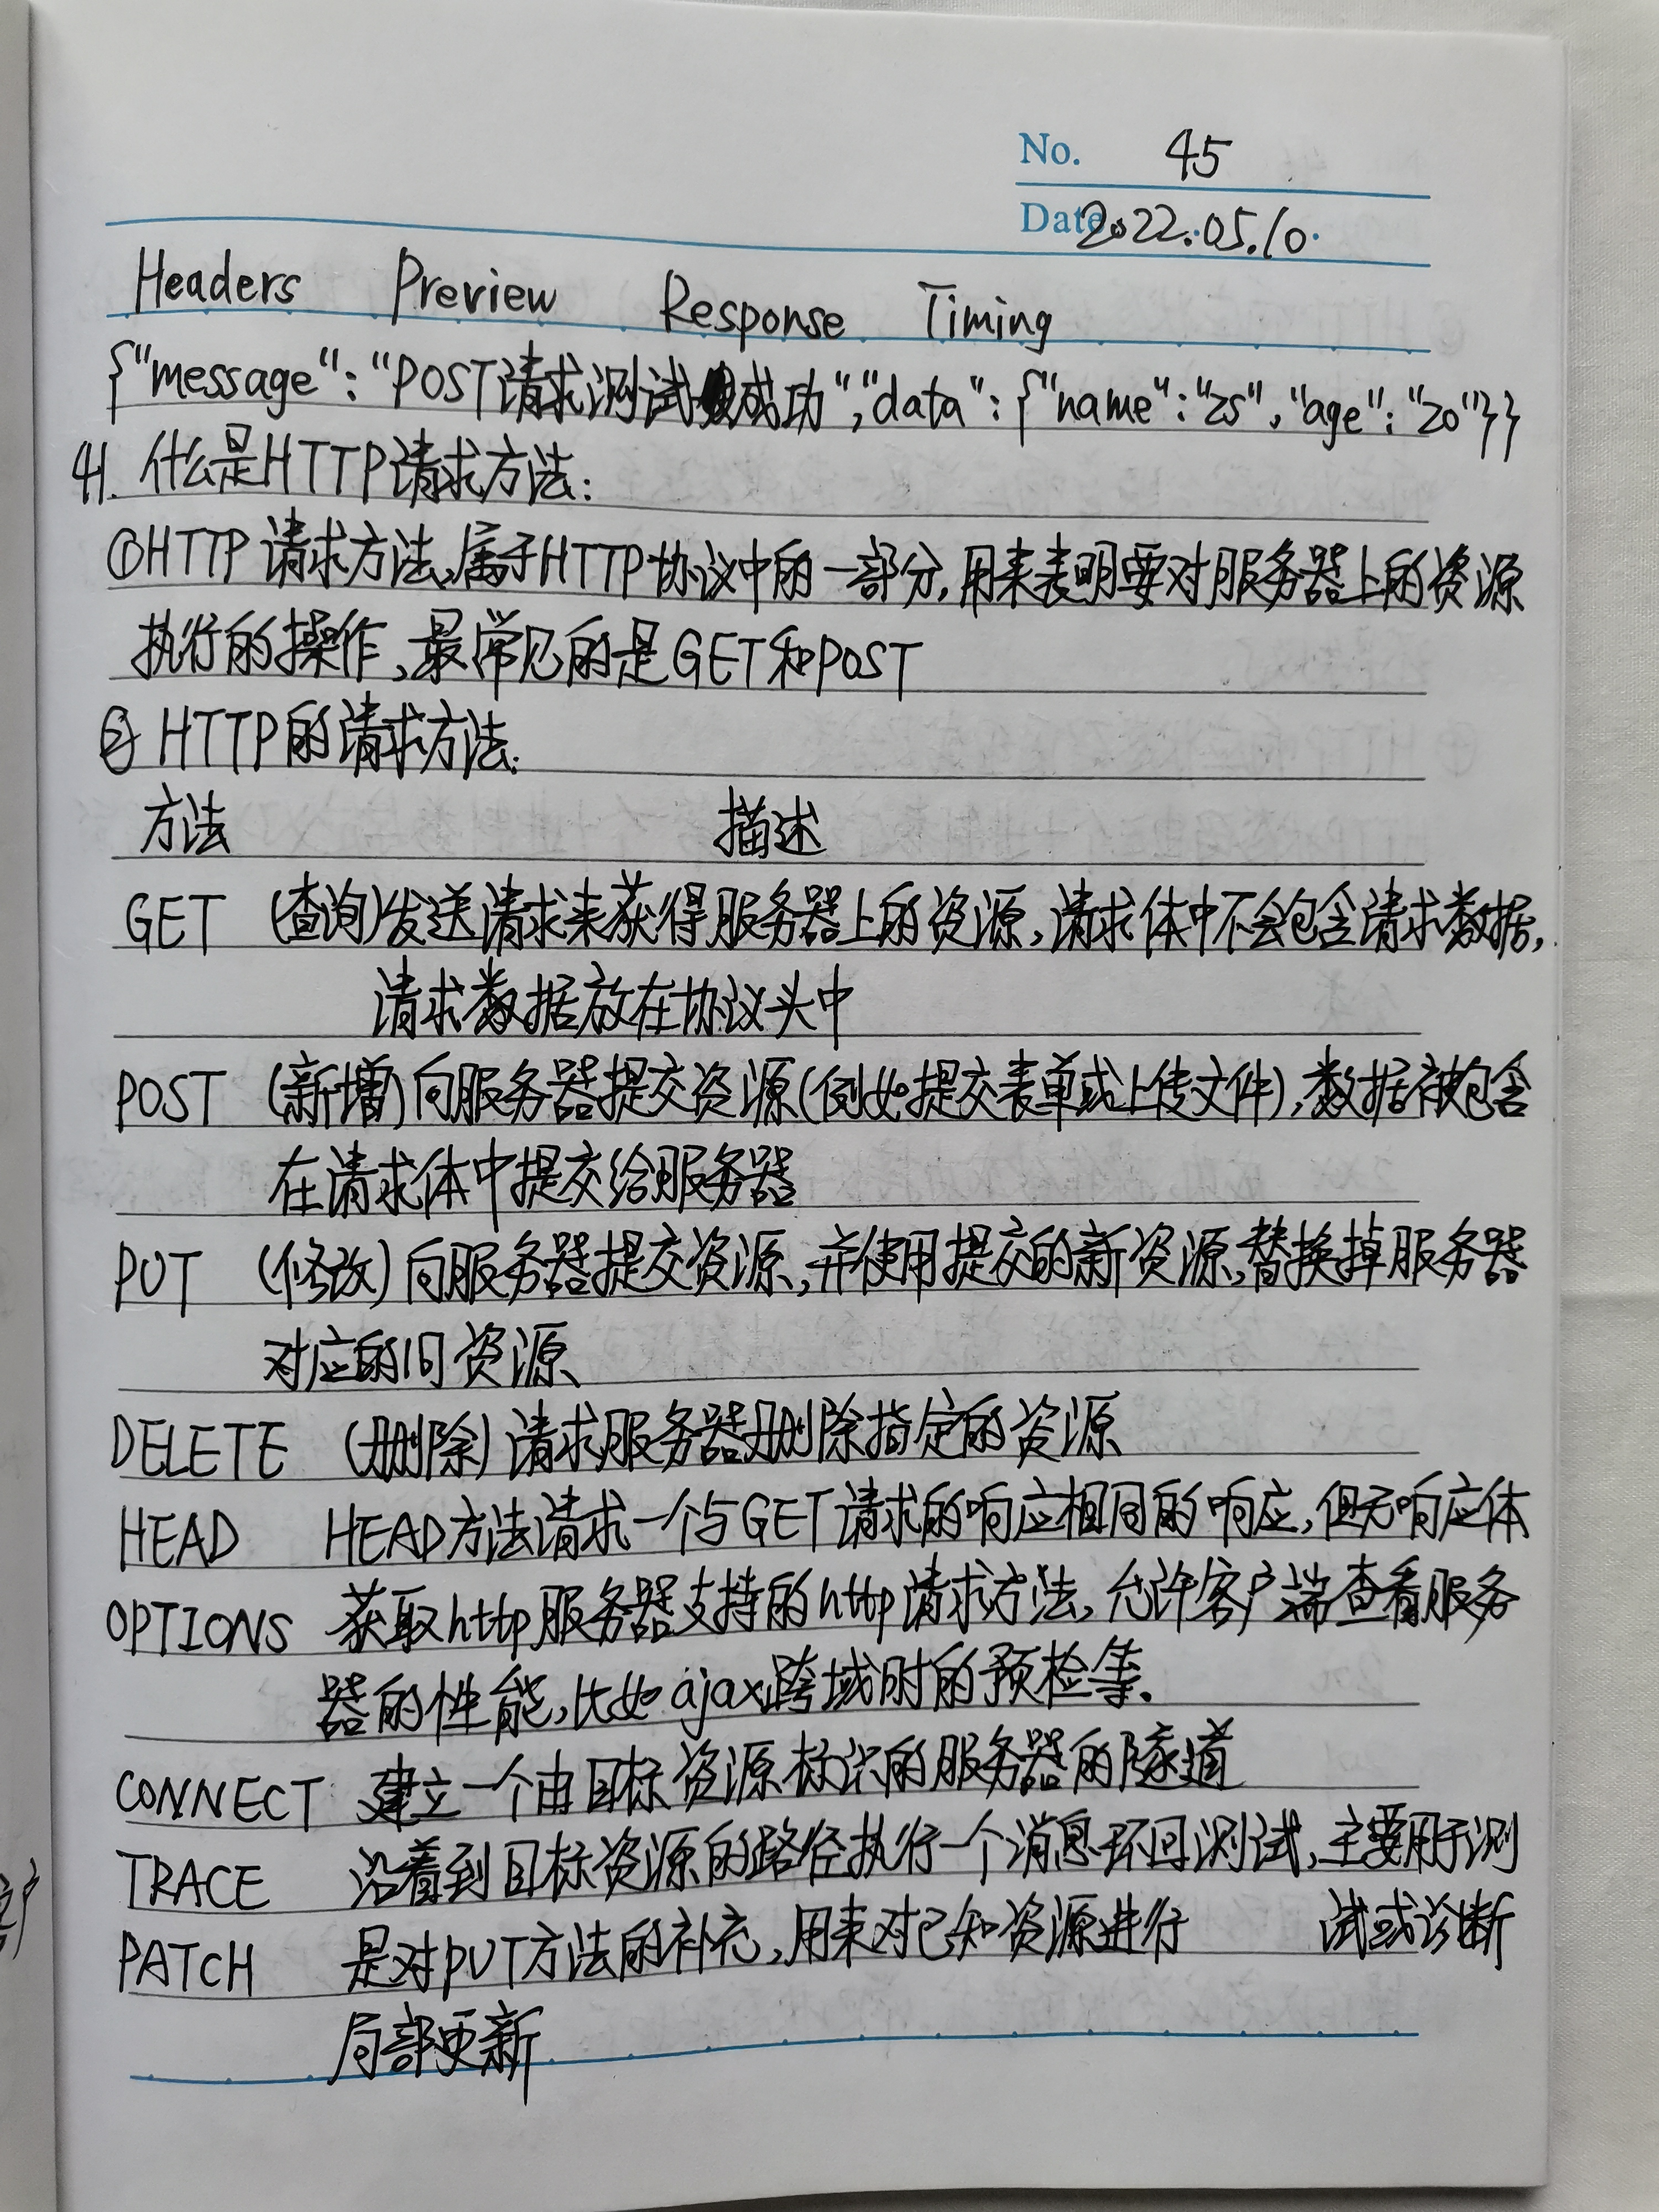 No. 45
Date 2022.05.10.
Headers Preview Response Timing
{"message":"POST请求测试成功","data":{"name":"zs","age":"20"}}
41. 什么是HTTP请求方法:
①HTTP请求方法,属于HTTP协议中的一部分,用来表明要对服务器上的资源
执行的操作,最常见的是GET和POST
② HTTP的请求方法:
方法 描述
GET (查询)发送请求来获得服务器上的资源,请求体中不会包含请求数据,
请求数据放在协议头中
POST (新增)向服务器提交资源(例如提交表单或上传文件),数据被包含
在请求体中提交给服务器
PUT (修改)向服务器提交资源,并使用提交的新资源,替换掉服务器
对应的旧资源、
DELETE (删除)请求服务器删除指定的资源
HEAD HEAD方法请求一个与GET请求的响应相同的响应,但无响应体
OPTIONS 获取http服务器支持的http请求方法,允许客户端查看服务
器的性能,比如ajax跨域时的预检等.
CONNECT 建立一个由目标资源标识的服务器的隧道
TRACE 沿着到目标资源的路径执行一个消息环回测试,主要用于测
PATCH 是对PUT方法的补充,用来对已知资源进行 试或诊断
局部更新